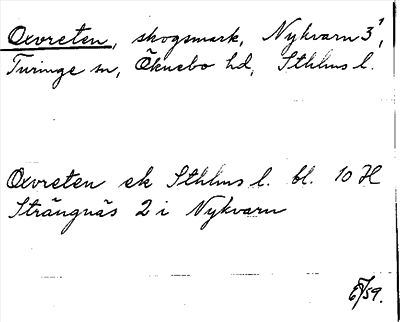 Oxvreten, skogsmark, Nykvarn 3¹,
Turinge sn, Öknebo hd, Sthlms l.
Oxvreten ek Sthlms l. bl. 10 H
Strängnäs 2 i Nykvarn
/59.